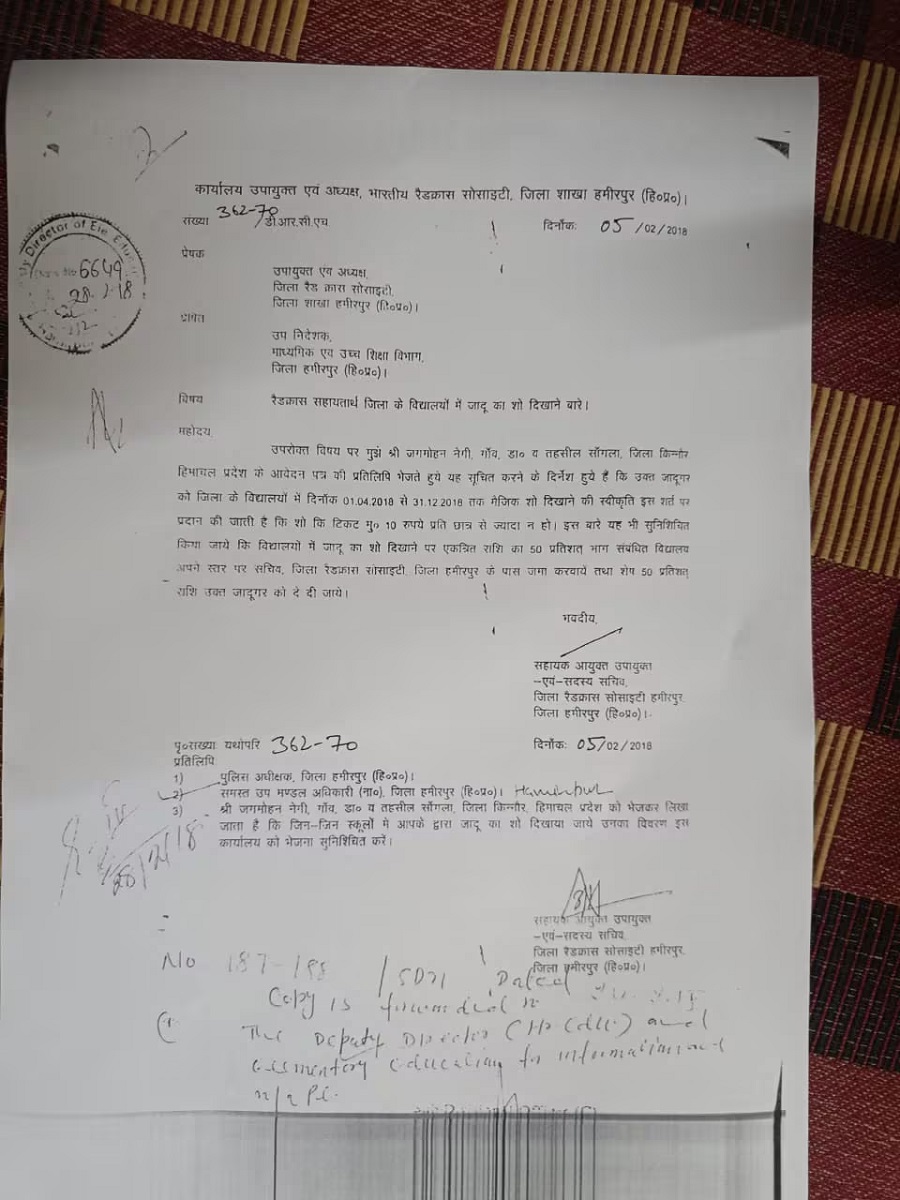 कार्यालय उपायुक्त एवं अध्यक्ष, भारतीय रैडक्रास सोसाइटी, जिला शाखा हमीरपुर (हि०प्र०)।
संख्या 362-70/डी.आर.सी.एच
दिनाँकः 05/02/2018
y Director of Ele. Educa
6649
28.2.18
प्रेषक
उपायुक्त एवं अध्यक्ष,
जिला रैड क्रास सोसाइटी,
जिला शाखा हमीरपुर (हि०प्र०)।
प्रेषित
उप निदेशक,
माध्यमिक एवं उच्च शिक्षा विभाग,
जिला हमीरपुर (हि०प्र०)।
विषय रैडक्रास सहायतार्थ जिला के विद्यालयों में जादू का शो दिखाने बारे।
महोदय
उपरोक्त विषय पर मुझे श्री जगमोहन नेगी, गाँव, डा० व तहसील साँगला, जिला किन्नौर
हिमाचल प्रदेश के आवेदन पत्र की प्रतिलिपि भेजते हुये यह सूचित करने के निर्देश हुये हैं कि उक्त जादूगर
को जिला के विद्यालयों में दिनाँक 01.04.2018 से 31.12.2018 तक मैजिक शो दिखाने की स्वीकृति इस शर्त पर
प्रदान की जाती है कि शो कि टिकट मु० 10 रुपये प्रति छात्र से ज्यादा न हो। इस बारे यह भी सुनिशिचित
किया जाये कि विद्यालयों में जादू का शो दिखाने पर एकत्रित राशि का 50 प्रतिशत् भाग संबंधित विद्यालय
अपने स्तर पर सचिव, जिला रैडक्रास सोसाइटी, जिला हमीरपुर के पास जमा करवायें तथा शेष 50 प्रतिशत्
राशि उक्त जादूगर को दे दी जाये।
भवदीय,
सहायक आयुक्त उपायुक्त
-एवं-सदस्य सचिव,
जिला रैडक्रास सोसाइटी हमीरपुर,
जिला हमीरपुर (हि०प्र०)।
पृ०संख्या यथोपरि 362-70
दिनाँकः 05/02/2018
प्रतिलिपि
1) पुलिस अधीक्षक, जिला हमीरपुर (हि०प्र०)।
2) समस्त उप मण्डल अधिकारी (ना०), जिला हमीरपुर (हि०प्र०)। Hamirpur
3) श्री जगमोहन नेगी, गाँव, डा० व तहसील साँगला, जिला किन्नौर, हिमाचल प्रदेश को भेजकर लिखा
जाता है कि जिन-जिन स्कूलों मे आपके द्वारा जादू का शो दिखाया जाये उनका विवरण इस
कार्यालय को भेजना सुनिश्चित करें।
सहायक आयुक्त उपायुक्त
-एवं-सदस्य सचिव,
जिला रैडक्रास सोसाइटी हमीरपुर,
जिला हमीरपुर (हि०प्र०)।
No 187-188 / SDM Dated
Copy is forwarded to
The Deputy Director (Hr Edu) and
elementary education for information and
n/a Pl.